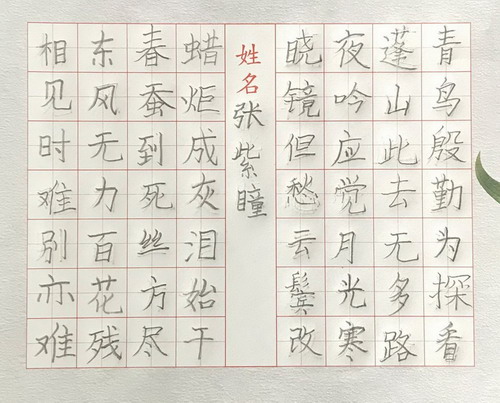 相见时难别亦难
东风无力百花残
春蚕到死丝方尽
蜡炬成灰泪始干
姓名张紫瞳
晓镜但愁云鬓改
夜吟应觉月光寒
蓬山此去无多路
青鸟殷勤为探看